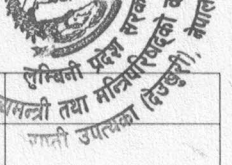 लुम्बिनी प्रदेश सरकार
मन्त्री तथा मन्त्रिपरिषद्को
उपत्यका (देउखुरी), नेपाल